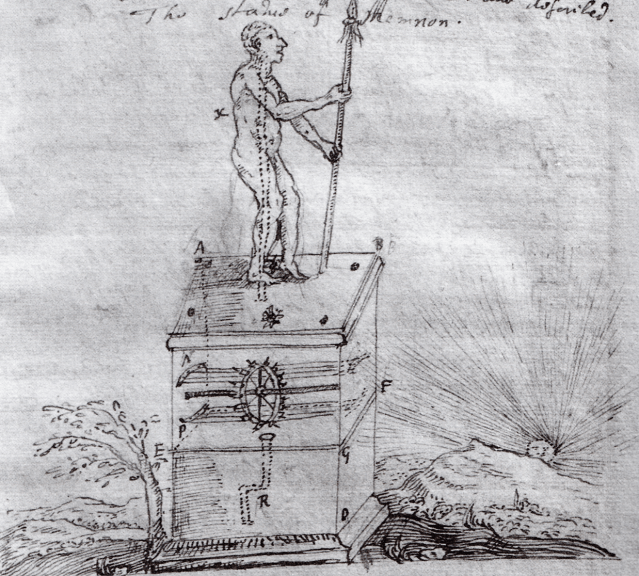 and described.
The statue of Memnon.
x
A B
N
F
P
E G
R
D